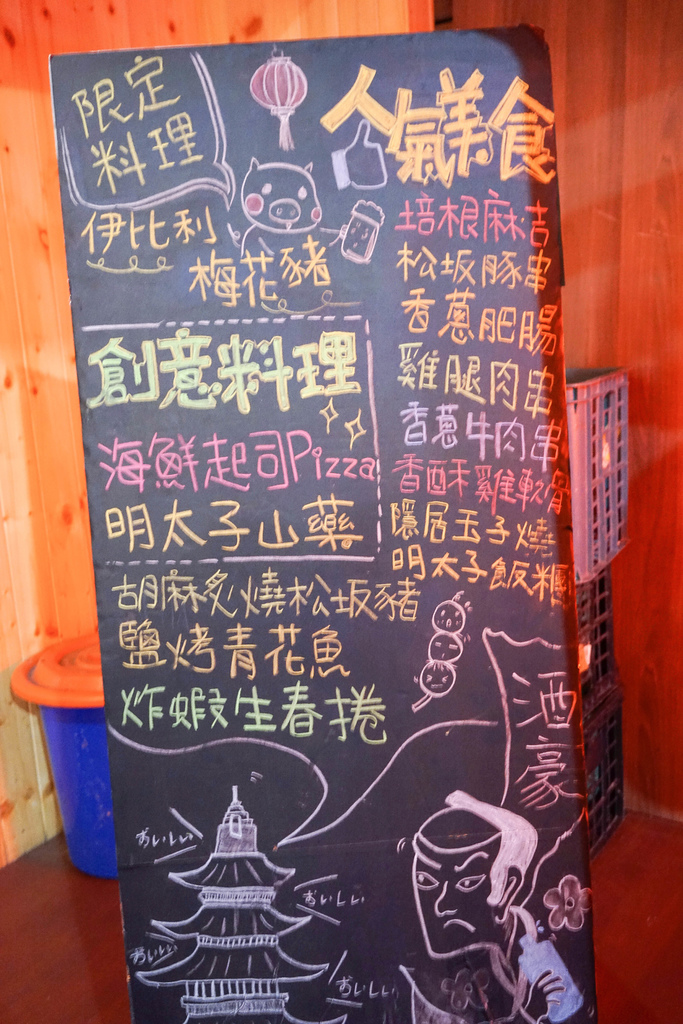 限定
料理
伊比利
梅花豬
創意料理
海鮮起司Pizza
明太子山藥
胡麻炙燒松坂豬
鹽烤青花魚
炸蝦生春捲
人氣美食
培根麻吉
松坂豚串
香蔥肥腸
雞腿肉串
香蔥牛肉串
香酥雞軟骨
隱居玉子燒
明太子飯糰
酒豪
おいしい
おいしい
おいしい
おいしい